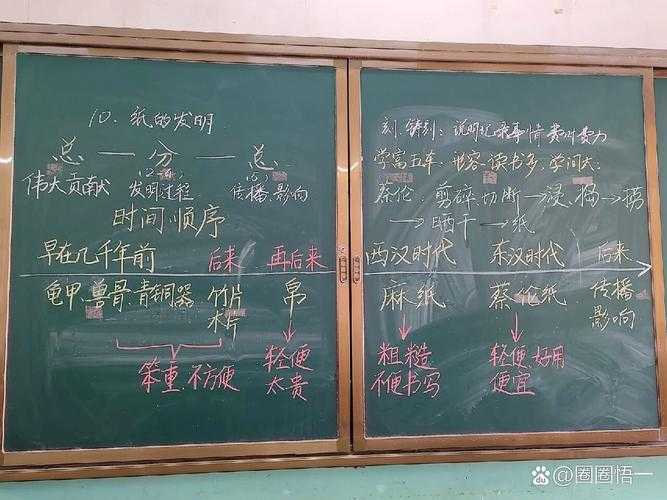 10、纸的发明
总 — 分 — 总
(2-4) (5)
伟大贡献 发明过程 传播、影响
时间顺序
早在几千年前 后来 再后来
龟甲、兽骨、青铜器 竹片 帛
木片
笨重、不方便 轻便
太贵
刻、铸刻：说明记录事情费时费力
学富五车：形容读书多，学问大。
蔡伦：剪碎、切断→浸、捣→捞
→晒干→纸
西汉时代 东汉时代 后来
麻纸 蔡伦纸 传播
影响
粗糙 轻便、好用
不便书写 便宜
Bai du @圈圈悟一